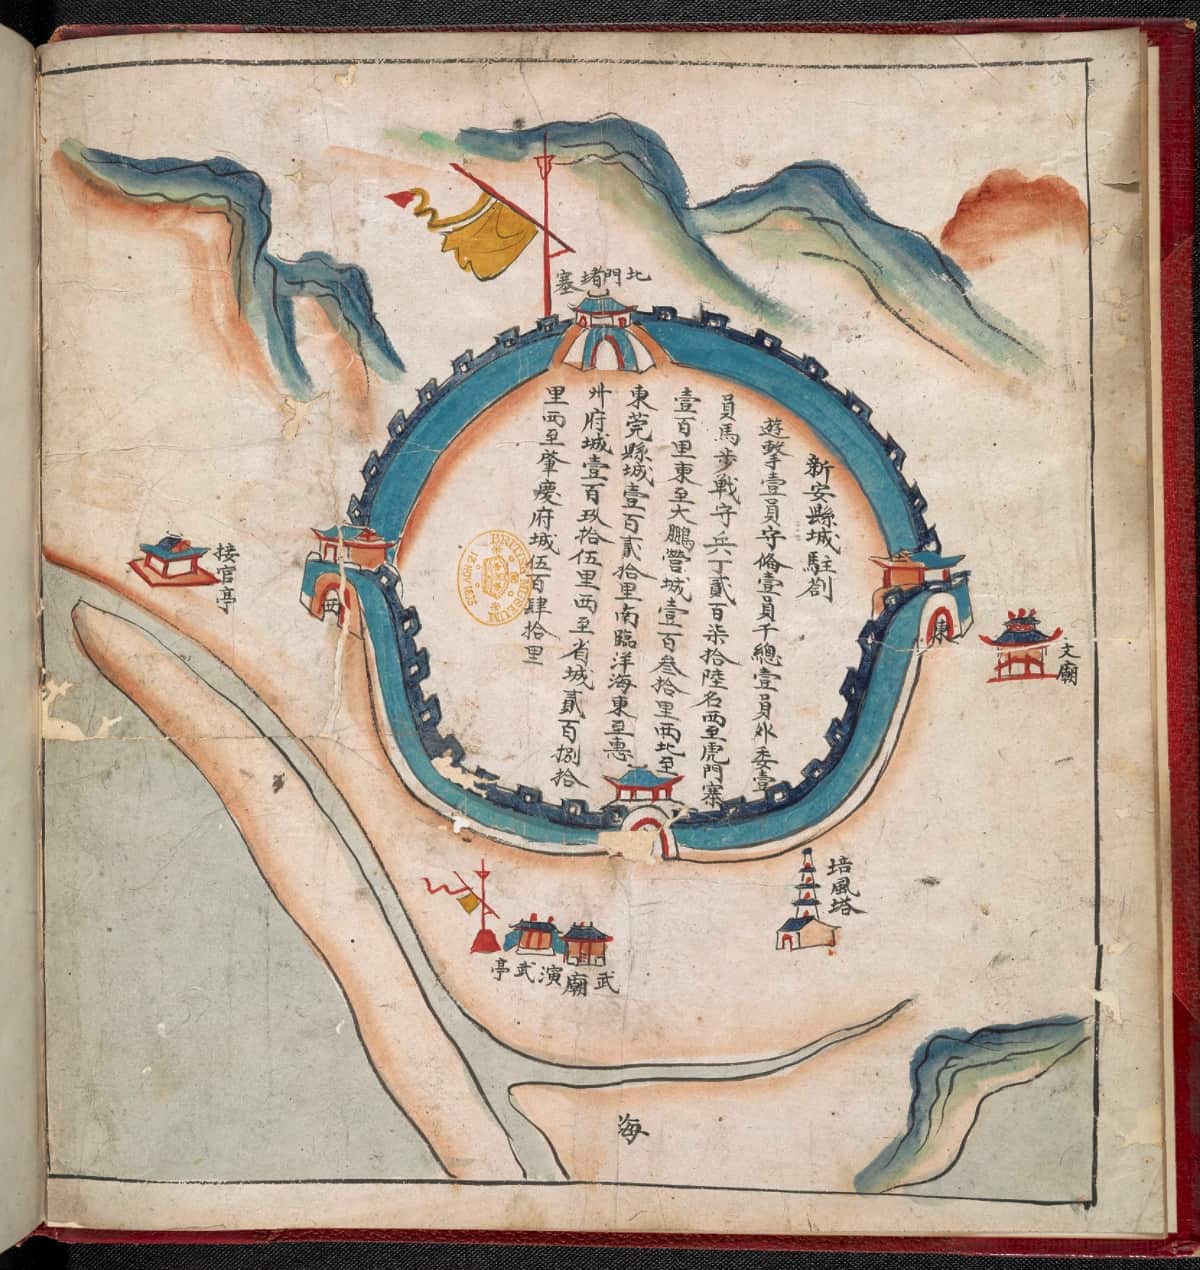 北門堵塞
新安縣城駐劄
遊擊壹員守俻壹員千總壹員外委壹
員馬步戰守兵丁貳百柒拾陸名西至虎門寨
壹百里東至大鵬營城壹百叁拾里西北至
東莞縣城壹百貳拾里南臨洋海東至惠
州府城壹百玖拾伍里西至省城貳百捌拾
里西至肇慶府城伍百肆拾里
接官亭
西
東
文廟
培風塔
武廟
演武亭
海
BRITISH MUSEUM